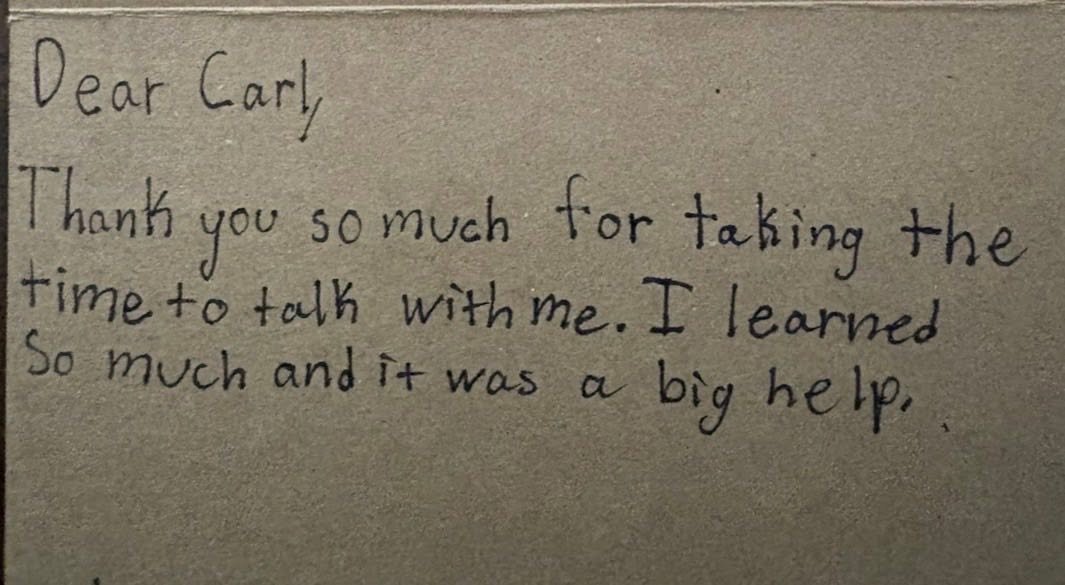 Dear Carl,
Thank you so much for taking the
time to talk with me. I learned
So much and it was a big help.